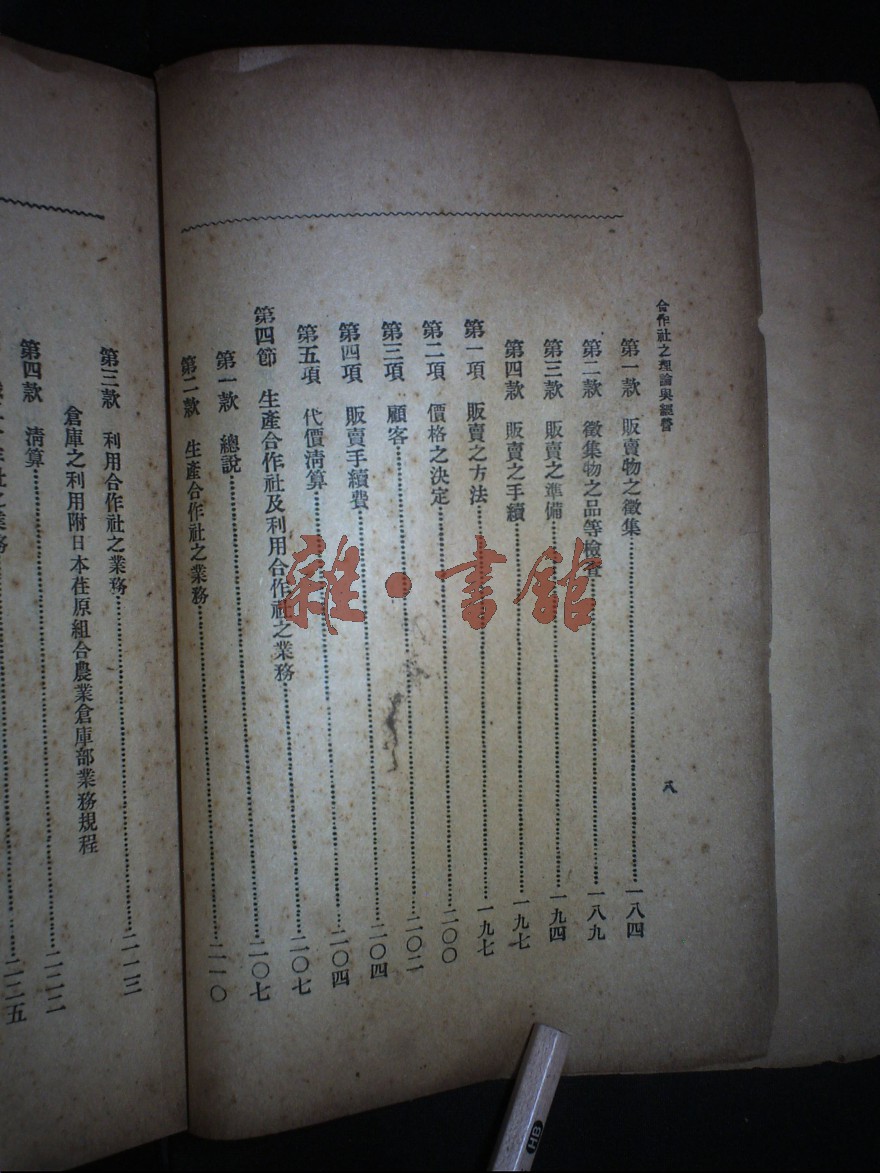 合作社之理論與經營
八
第一款 販賣物之徵集⋯⋯一八四
第二款 徵集物之品等檢查⋯⋯一八九
第三款 販賣之準備⋯⋯一九四
第四款 販賣之手續⋯⋯一九七
第一項 販賣之方法⋯⋯一九七
第二項 價格之決定⋯⋯二〇〇
第三項 顧客⋯⋯二〇二
第四項 販賣手續費⋯⋯二〇四
第五項 代價清算⋯⋯二〇四
第四節 生產合作社及利用合作社之業務⋯⋯二〇七
第一款 總說⋯⋯二〇七
第二款 生產合作社之業務⋯⋯二一〇
第三款 利用合作社之業務⋯⋯二一三
倉庫之利用附日本荏原組合農業倉庫部業務規程
第四款 清算⋯⋯二二二
二二五
雜·書館
HB